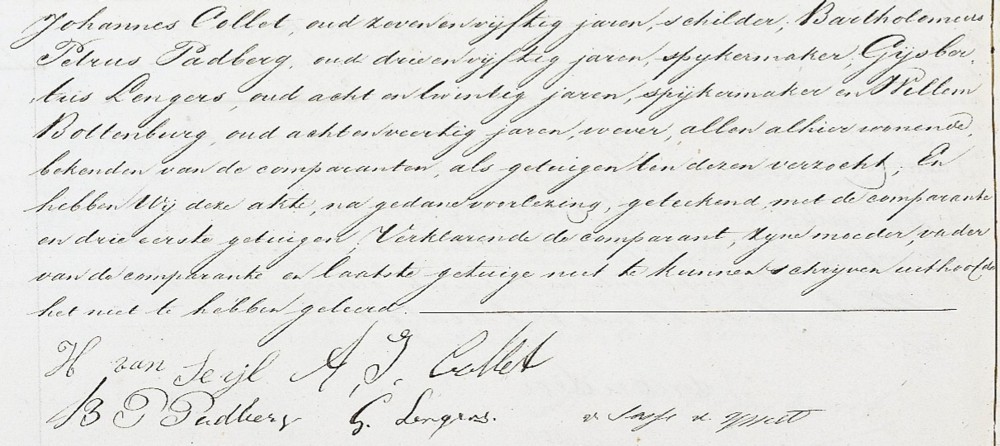 Johannes Collet, oud zeven en vijftig jaren, schilder, Bartholomeus
Petrus Padberg, oud drie en vijftig jaren, spijkermaker, Gijsber,,
tus Lengers, oud acht en twintig jaren, spijkermaker en Willem
Bottenburg, oud acht en veertig jaren, wever, allen alhier wonende,
bekenden van de comparanten, als getuigen ten dezen verzocht; En
hebben Wij deze akte, na gedane voorlezing, geteekend met de comparante
en drie eerste getuigen, Verklarende de comparant, zijne moeder, vader
van de comparante en laatste getuige niet te kunnen schrijven uithoofde
het niet te hebben geleerd.
H van Seijl A, J. Collet
B P Padberg G. Lengers.